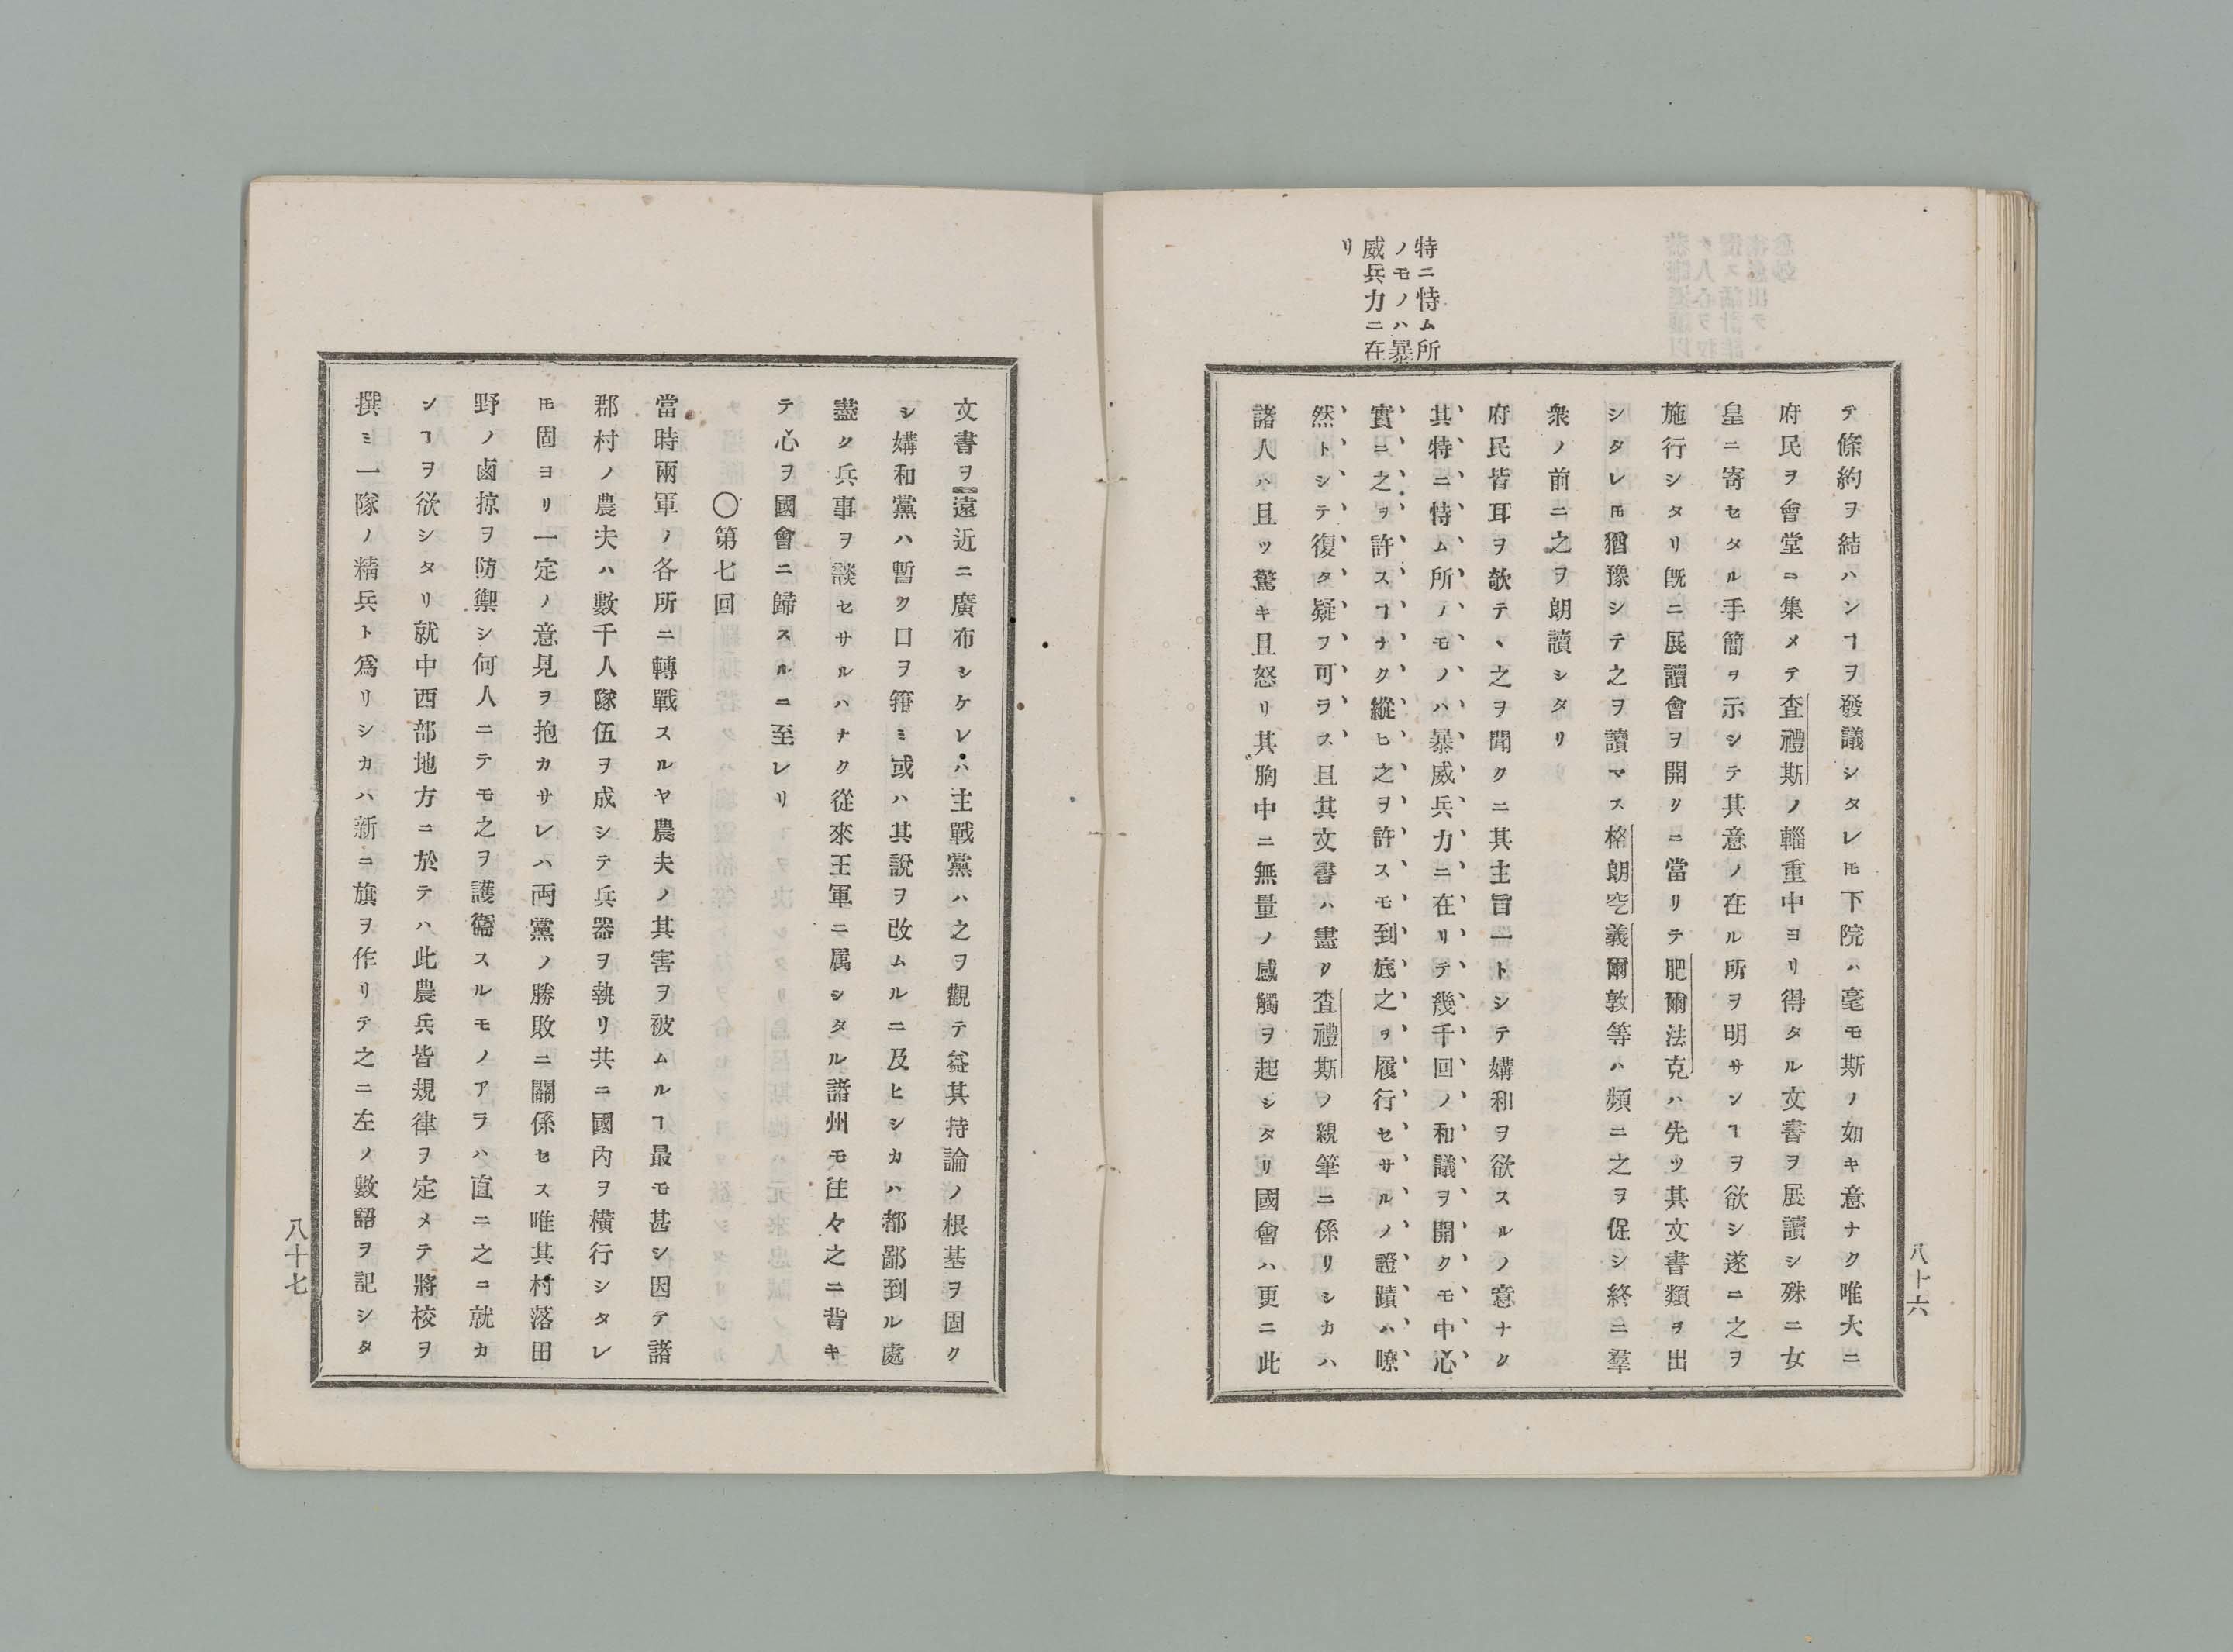 特ニ恃ム所
ノモノハ暴
威兵力ニ在
リ
テ條約ヲ結ハンヿヲ發議シタレ𪜈下院ハ毫モ斯ノ如キ意ナク唯大ニ
府民ヲ會堂ニ集メテ査禮斯ノ輜重中ヨリ得タル文書ヲ展讀シ殊ニ女
皇ニ寄セタル手簡ヲ示シテ其意ノ在ル所ヲ明サンヿヲ欲シ遂ニ之ヲ
施行シタリ旣ニ展讀會ヲ開クニ當リテ肥爾法克ハ先ツ其文書類ヲ出
シタレ𪜈猶豫シテ之ヲ讀マス格朗空義爾敦等ハ頻ニ之ヲ促シ終ニ羣
衆ノ前ニ之ヲ朗讀シタリ
府民皆耳ヲ欹テヽ之ヲ聞クニ其主旨一トシテ媾和ヲ欲スルノ意ナク
其特ニ恃ム所ノモノハ暴威兵力ニ在リテ幾千回ノ和議ヲ開クモ中心
實ニ之ヲ許スヿナク縱ヒ之ヲ許スモ到底之ヲ履行セサルノ證蹟ハ瞭
然トシテ復タ疑フ可ヲス且其文書ハ盡ク査禮斯ノ親筆ニ係リシカハ
諸人ハ且ツ驚キ且怒リ其胸中ニ無量ノ感觸ヲ起シタリ國會ハ更ニ此
八十六
文書ヲ遠近ニ廣布シケレハ主戰黨ハ之ヲ觀テ益其持論ノ根基ヲ固ク
シ媾和黨ハ暫ク口ヲ箝ミ或ハ其說ヲ改ムルニ及ヒシカハ都鄙到ル處
盡ク兵事ヲ談セサルハナク從來王軍ニ属シタル諸州モ往々之ニ背キ
テ心ヲ國會ニ歸スルニ至レリ
〇第七回
當時兩軍ノ各所ニ轉戰スルヤ農夫ノ其害ヲ被ムルヿ最モ甚シ因テ諸
郡村ノ農夫ハ數千人隊伍ヲ成シテ兵器ヲ執リ共ニ國內ヲ橫行シタレ
𪜈固ヨリ一定ノ意見ヲ抱カサレハ両黨ノ勝敗ニ關係セス唯其村落田
野ノ鹵掠ヲ防禦シ何人ニテモ之ヲ護衞スルモノアラハ直ニ之ニ就カ
ンヿヲ欲シタリ就中西部地方ニ於テハ此農兵皆規律ヲ定メテ將校ヲ
撰ミ一隊ノ精兵ト爲リシカハ新ニ旗ヲ作リテ之ニ左ノ數語ヲ記シタ
八十七